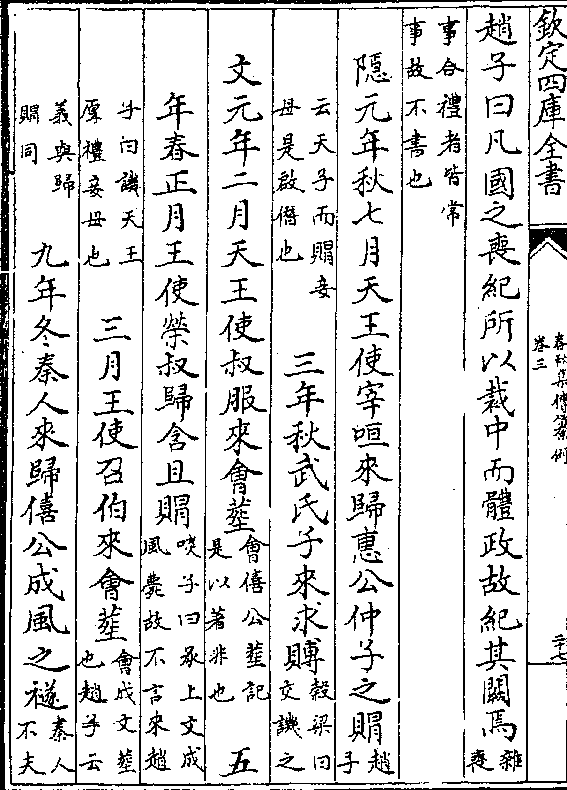 欽定四庫全書
春秋集傳纂例
卷三
二十七
趙子曰凡國之喪紀所以裁中而體政故紀其闕焉雜
喪
事合禮者皆常
事故不書也
隱元年秋七月天王使宰咺來歸惠公仲子之賵趙
子
云天子而賵妾
母是啟僭也
三年秋武氏子來求賻穀梁曰
交譏之
文元年二月天王使叔服來會塟會僖公塟記
是以著非也
五
年春正月王使榮叔歸含且賵啖子曰承上文成
風薨故不言來趙
子曰譏天王
厚禮妾母也
三月王使召伯來會塟會成文塟
也趙子云
義與歸
賵同
九年冬秦人來歸僖公成風之襚秦人
不夫